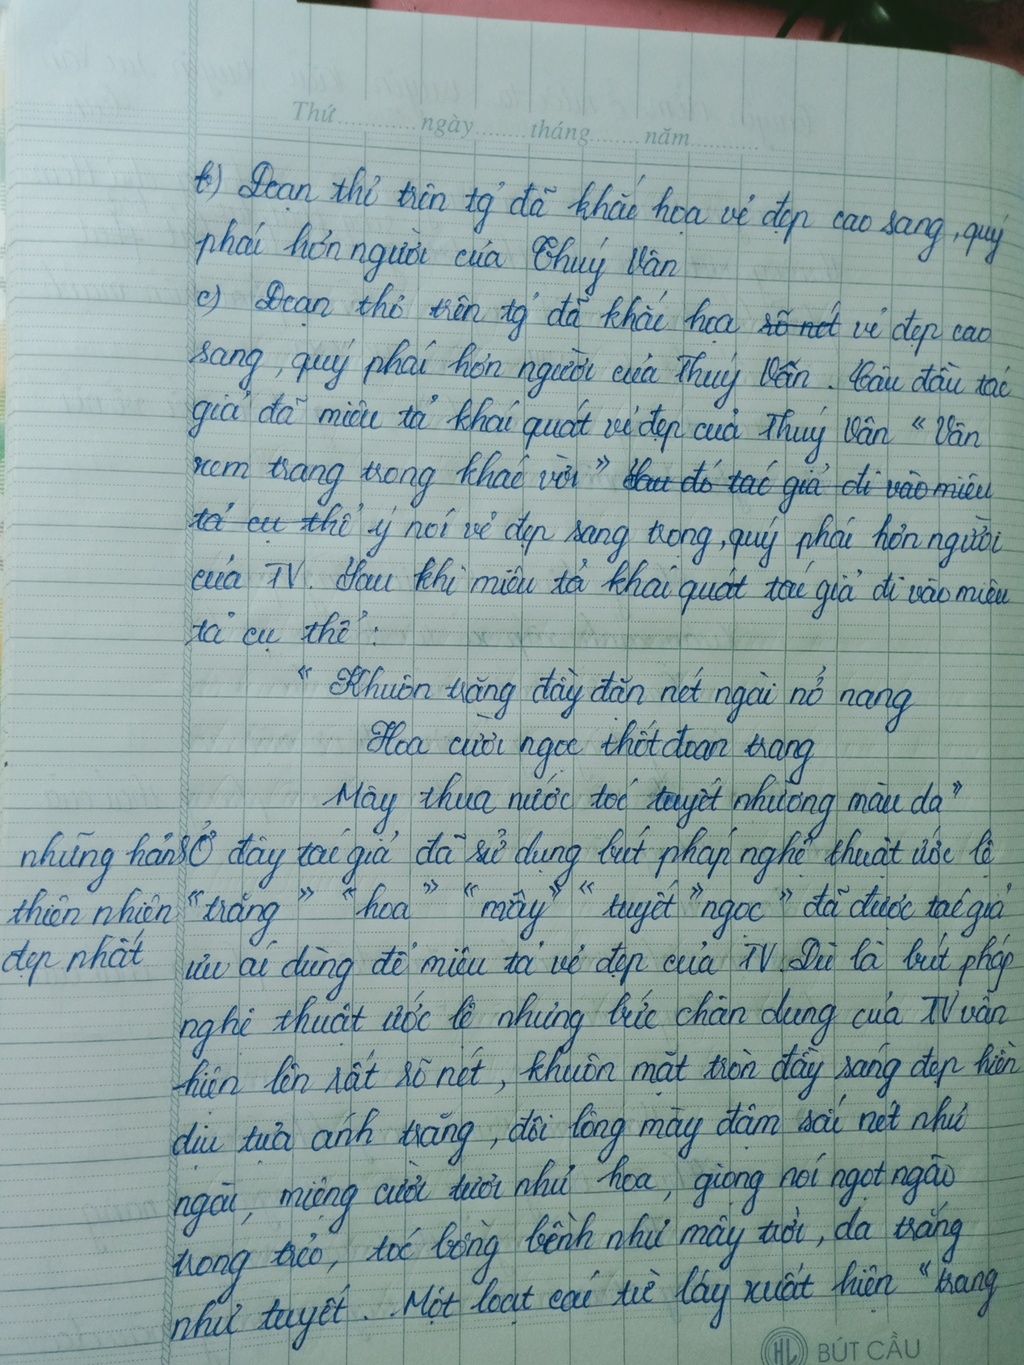 Thứ............ngày........tháng.......năm...........
b) Đoạn thơ trên tg' đã khắc họa vẻ đẹp cao sang, quý
phái hơn người của Thúy Vân
c) Đoạn thơ trên tg' đã khắc họa rõ nét vẻ đẹp cao
sang, quý phái hơn người của Thúy Vân. Câu đầu tác
giả đã miêu tả khái quát vẻ đẹp của Thúy Vân "Vân
xem trang trọng khác vời" Sau đó tác giả đi vào miêu
tả cụ thể ý nói vẻ đẹp sang trọng, quý phái hơn người
của TV. Sau khi miêu tả khái quát tác giả đi vào miêu
tả cụ thể:
" Khuôn trăng đầy đặn nét ngài nở nang
Hoa cười ngọc thốt đoan trang
Mây thua nước tóc tuyết nhường màu da"
Ở đây tác giả đã sử dụng bút pháp nghệ thuật ước lệ
những hả
"trăng" "hoa" "mây" "tuyết "ngọc" đã được tác giả
thiên nhiên
ưu ái dùng để miêu tả vẻ đẹp của TV. Dù là bút pháp
đẹp nhất
nghệ thuật ước lệ nhưng bức chân dung của TV vẫn
hiện lên rất rõ nét, khuôn mặt tròn đầy sáng đẹp hiền
dịu tựa ánh trăng, đôi lông mày đậm sắc nét như
ngài, miệng cười tươi như hoa, giọng nói ngọt ngào
trong trẻo, tóc bồng bềnh như mây trời, da trắng
như tuyết. Một loạt các từ láy xuất hiện "trang
HL BÚT CẦU